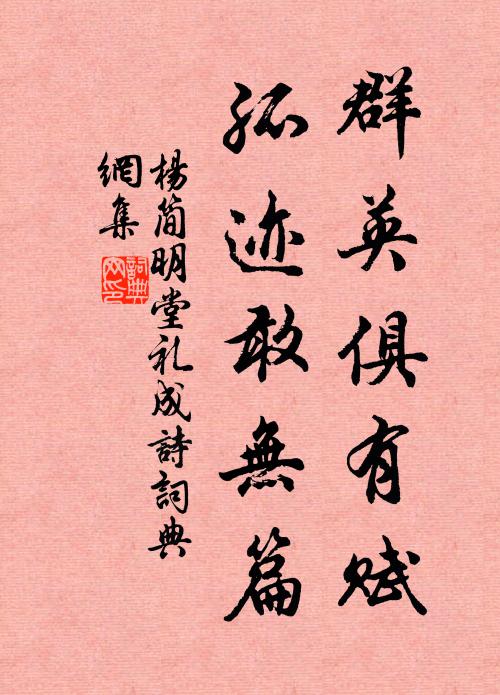 群英俱有赋
孤迹敢無篇
楊简明堂礼成詩詞典
網集
詞典
网印